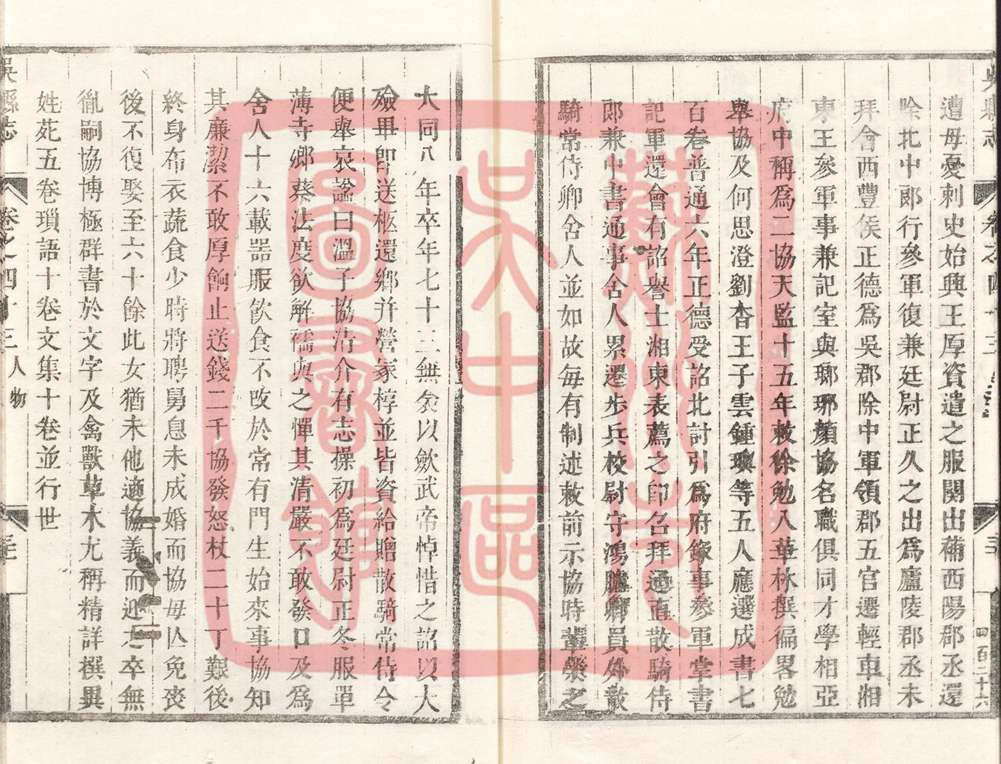 遭母憂刺史始興王厚資遣之服闋出補西陽郡丞還
除北中郎行參軍復兼廷尉正久之出爲廬陵郡丞未
拜會西豐侯正德爲吳郡除中軍領郡五官遷輕車湘
東王參軍事兼記室與瑯琊顏協名職俱同才學相亞
府中稱爲二協天監十五年敕徐勉入華林撰徧畧勉
舉協及何思澄劉杳王子雲鍾㠸等五人應選成書七
百卷普通六年正德受詔北討引爲府錄事參軍掌書
記軍還會有詔舉士湘東表薦之即召拜通直散騎侍
郎兼中書通事舍人累遷步兵校尉守鴻臚卿員外散
騎常侍卿舍人並如故每有制述敕前示協時輩榮之
大同八年卒年七十三無衾以歛武帝悼惜之詔以大
殮畢卽送柩還鄉并營冢槨並皆資給贈散騎常侍令
便舉哀諡曰溫子協淸介有志操初爲廷尉正冬服單
薄寺卿蔡法度欲解襦與之憚其淸嚴不敢發口及爲
舍人十六載器服飮食不攺於常有門生始來事協知
其廉絜不敢厚餉止送錢二千協發怒杖二十丁艱後
終身布衣蔬食少時將聘舅息未成婚而協母亾免喪
後不復娶至六十餘此女猶未他適協義而迎之卒無
𠧧嗣協博極群書於文字及禽獸草木尤稱精詳撰異
姓苑五卷瑣語十卷文集十卷並行世
吳縣志
卷之四十三
人物
四百三十六
蘇州市
吳中區
圖書館